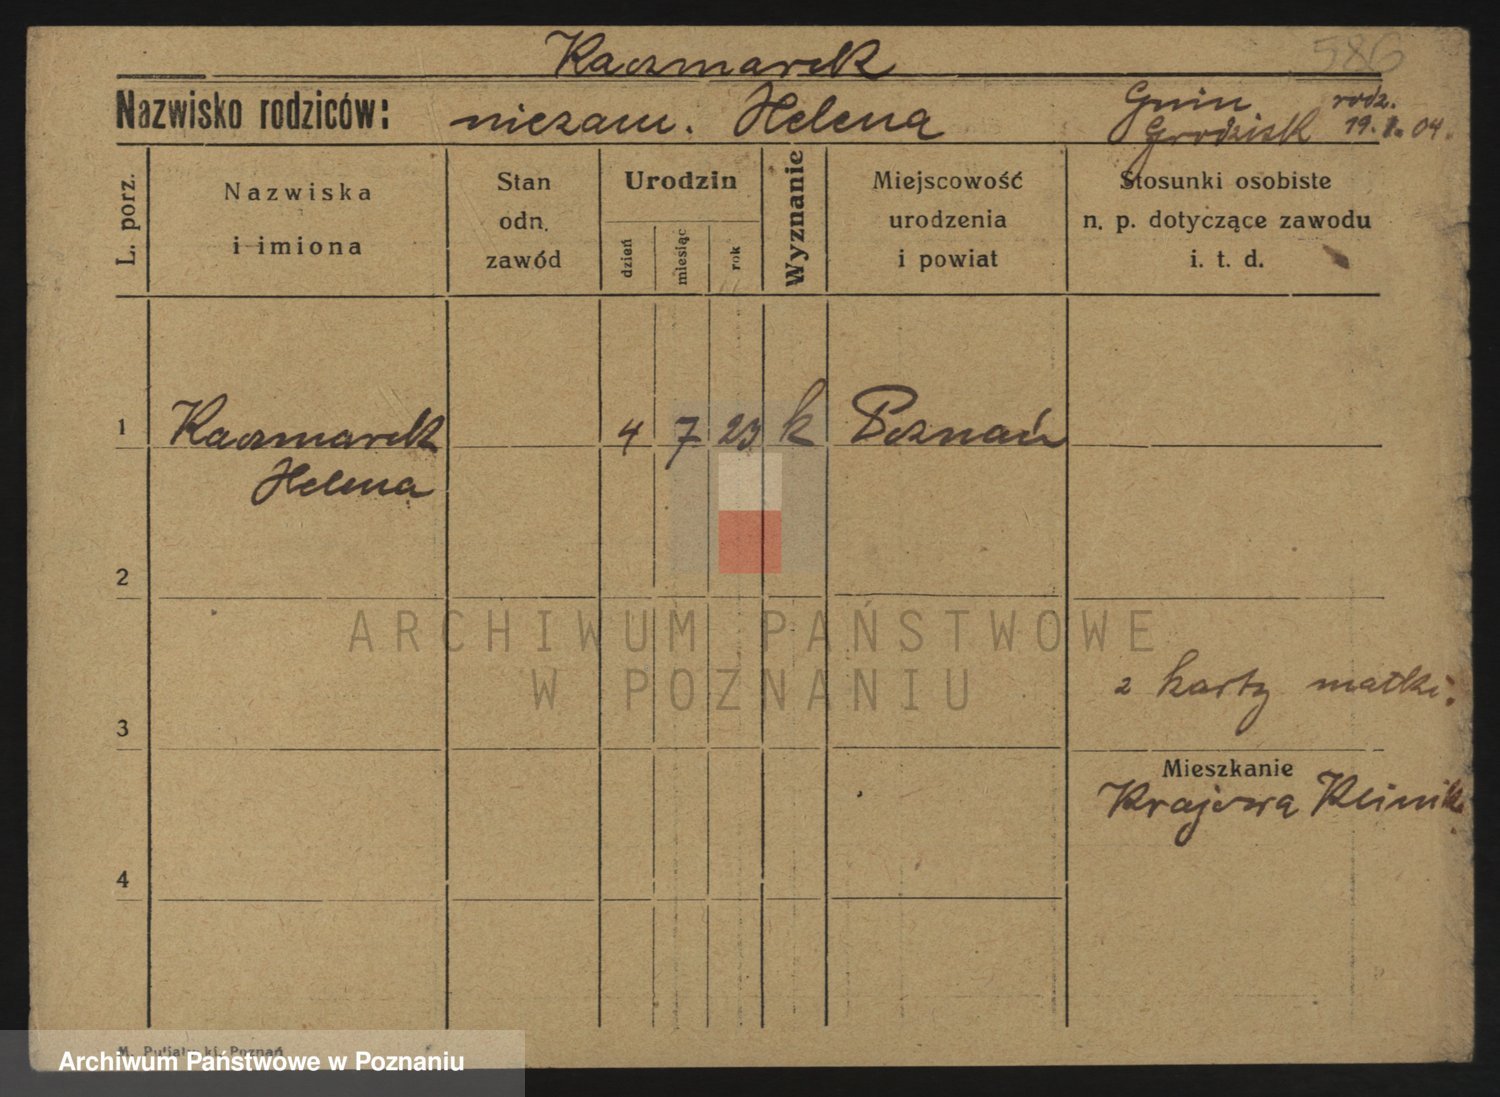 586
Kaczmarek
Nazwisko rodziców: niezam. Helena Gnin rodz.
Grodzisk 19. 04.
L. porz.
Nazwiska
i imiona
Stan
odn.
zawód
Urodzin
dzień
miesiąc
rok
Wyznanie
Miejscowość
urodzenia
i powiat
Stosunki osobiste
n. p. dotyczące zawodu
i. t. d.
1 Kaczmarek 4 7 23 k Poznań
Helena
2
ARCHIWUM PAŃSTWOWE
W POZNANIU
z karty matki.
3
Mieszkanie
Krajowa Klinik
4
M. Poznań
Archiwum Państwowe w Poznaniu